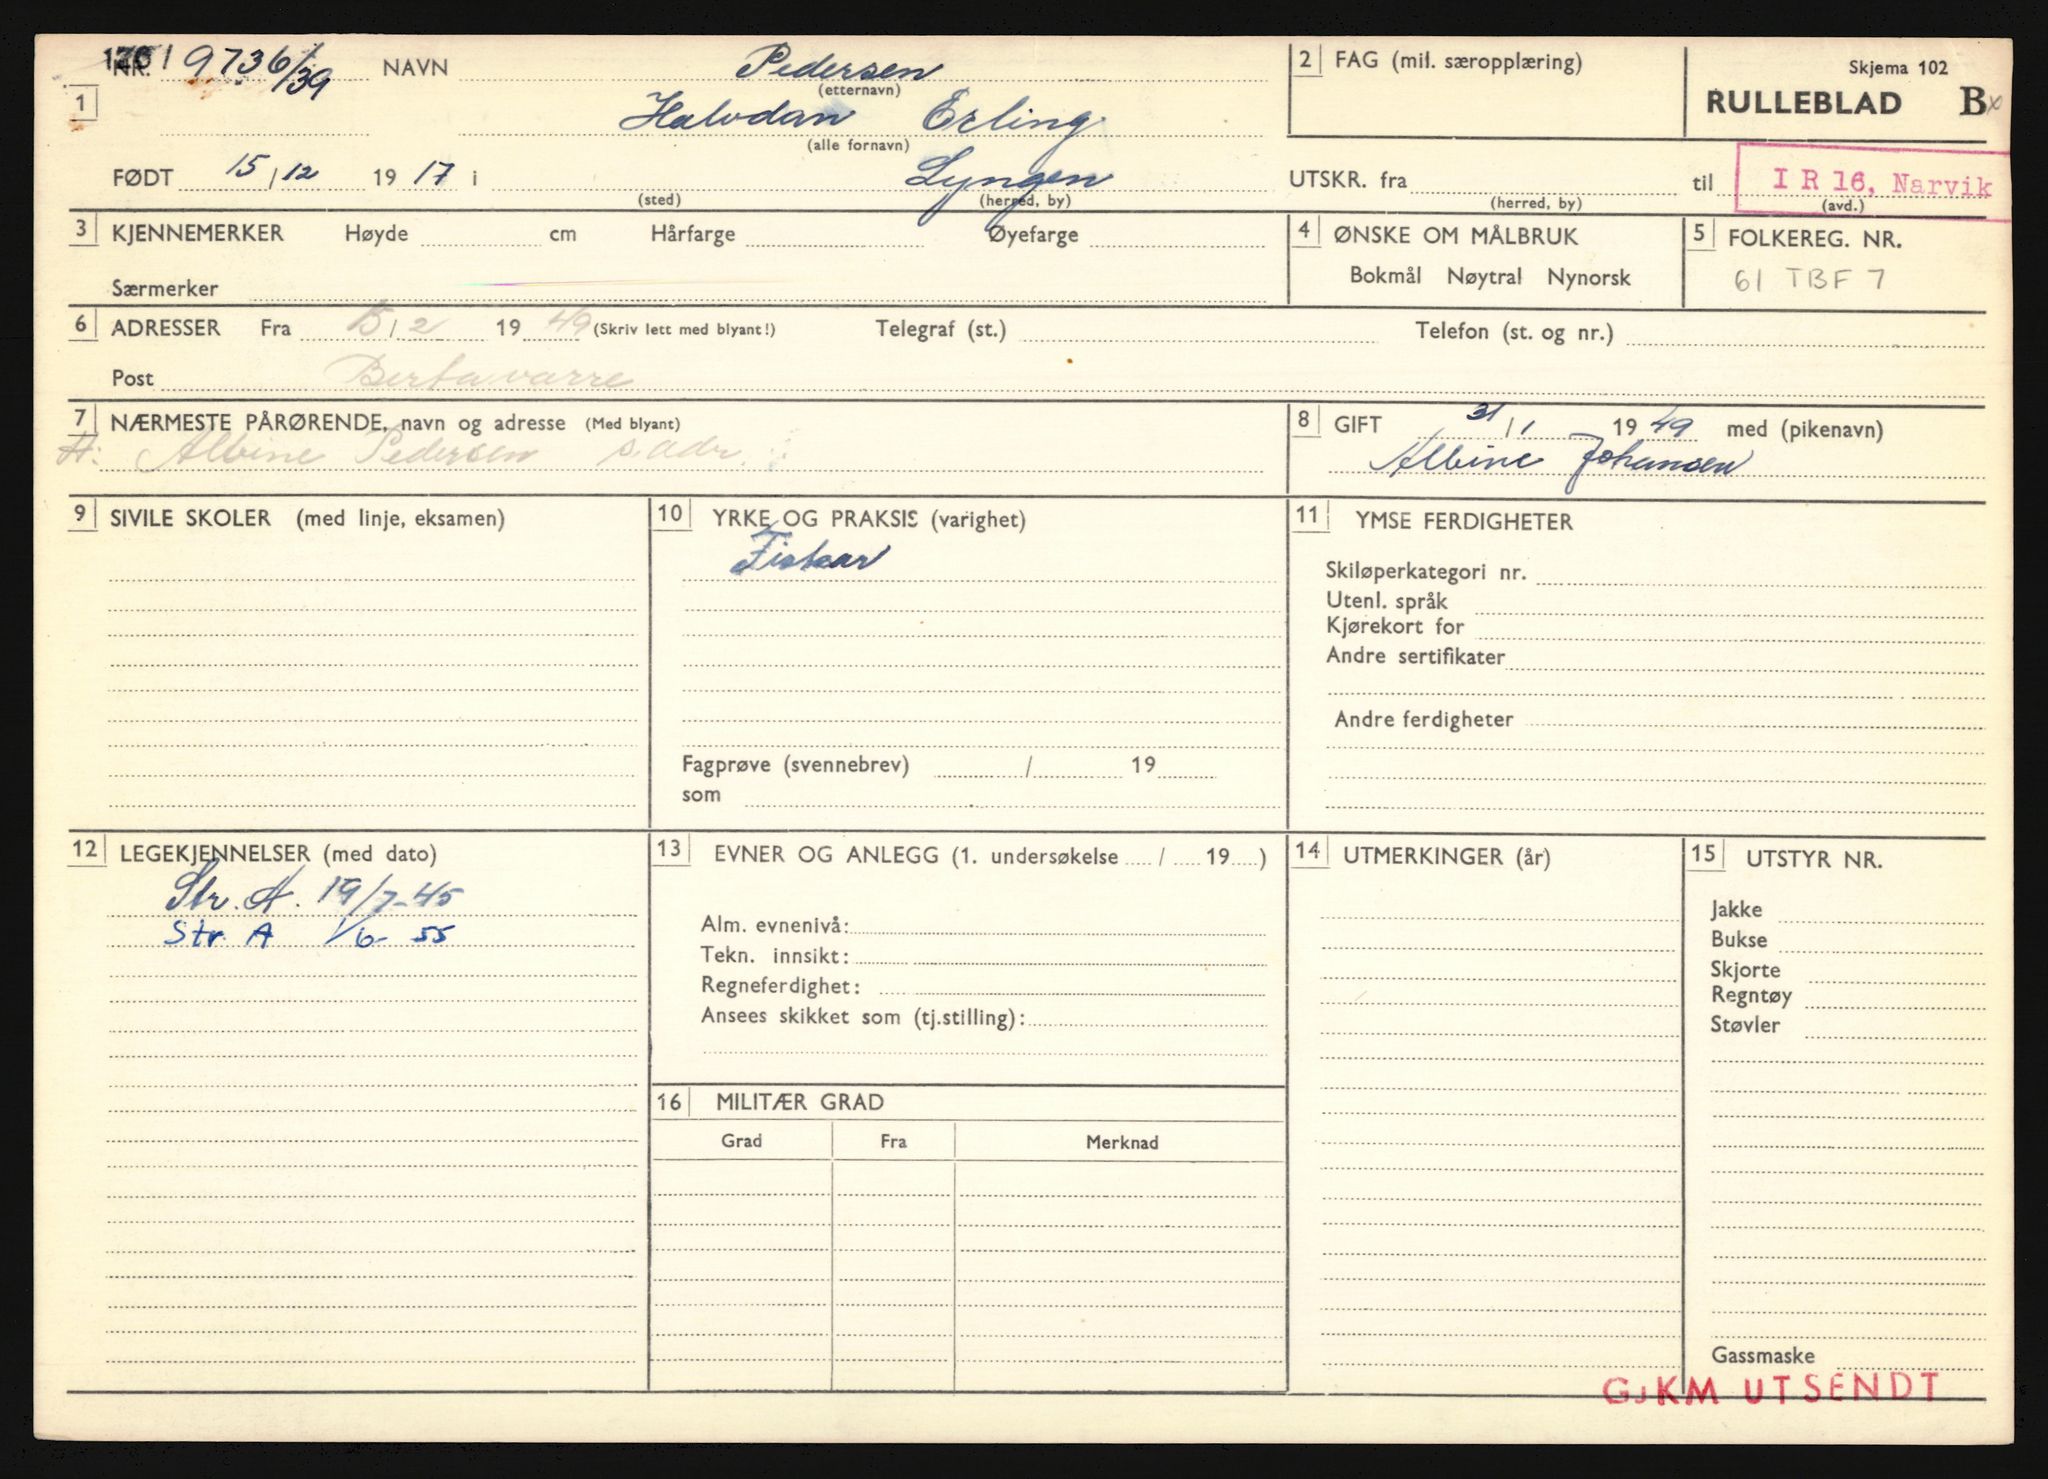 NR. 9736/39 NAVN Pedersen 2 FAG (mil. særopplæring) Skjema 102
(etternavn) RULLEBLAD B
1 Halvdan Erling
(alle fornavn)
FØDT 15/12 1917 i Lyngen UTSKR. fra til I R 16, Narvik
(sted) (herred, by) (herred, by) (avd.)
3 KJENNEMERKER Høyde cm Hårfarge Øyefarge 4 ØNSKE OM MÅLBRUK 5 FOLKEREG. NR.
Særmerker Bokmål Nøytral Nynorsk 61 TBF 7
6 ADRESSER Fra 15/2 1949 (Skriv lett med blyant!) Telegraf (st.) Telefon (st. og nr.)
Post Birtavarre
7 NÆRMESTE PÅRØRENDE, navn og adresse (Med blyant) 8 GIFT 31/1 1949 med (pikenavn)
H: Albine Pedersen s. adr. Albine Johansen
9 SIVILE SKOLER (med linje, eksamen) 10 YRKE OG PRAKSIS (varighet) 11 YMSE FERDIGHETER
Fiskar
Skiløperkategori nr.
Utenl. språk
Kjørekort for
Andre sertifikater
Andre ferdigheter
Fagprøve (svennebrev) / 19
som
12 LEGEKJENNELSER (med dato) 13 EVNER OG ANLEGG (1. undersøkelse / 19 ) 14 UTMERKINGER (år) 15 UTSTYR NR.
Str. A. 19/7-45
Str. A 1/6-55
Alm. evnenivå:
Tekn. innsikt:
Regneferdighet:
Ansees skikket som (tj.stilling):
Jakke
Bukse
Skjorte
Regntøy
Støvler
16 MILITÆR GRAD
Grad Fra Merknad
Gassmaske
GJKM UTSENDT